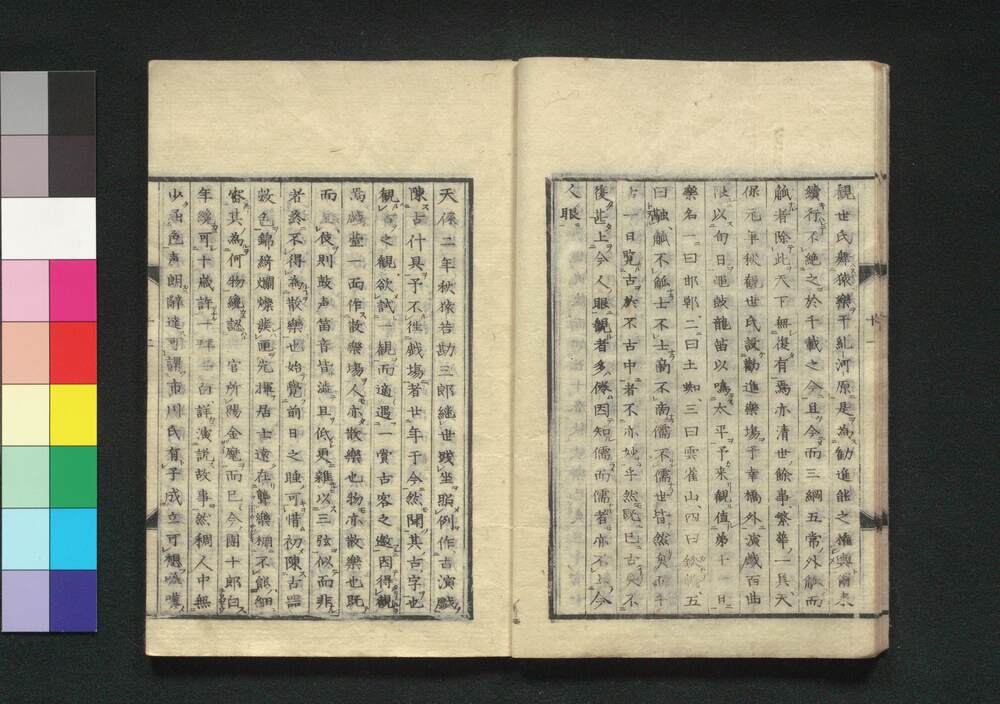 觀世氏舞猿樂于糺河原是為勸進能之權輿爾來
續行不絶之於千載之今且今而三綱五常外觚而
觚者除此天下無復有焉亦清世餘事繁華一具天
保元年秋觀世氏設勸進樂場于幸橋外演戲百曲
以旬日鼉皷龍笛以鳴太平予來觀值第十一日
樂名一曰邯鄲二曰土蜘三曰雲雀山四曰鉄輪五
曰融觚不觚士不士商不商儒不儒世皆然矣而千
古一日覽古於不古中者不亦妙乎然既已古矣不
復甚上今人眼觀者多條因知儒而儒者亦不上今
人眼
天保二年秋猿若勘三郎繼世踐坐照例作古演戲
陳古什具予不徃戲場若世年于今然聞其古字也
觀古之觀欲試一觀而適遇一賞古客之邀因得觀
焉戲臺一面作散樂場人亦散樂也物亦散樂也既
而伎則鼓声笛音皆澁且低更雜以三弦似而非
者姿不得為散樂也始覺前日之睡可惜初陳古器
數色錦綺斕燦裝匣光揮居士遠在聾樂棚不能細
審其為何物纔認官所賜金麾而已今團十郎白
年纔可十歲許一拜白詳演説故事然稠人中無
少色声朗辭達可謂市川氏有子成立可想嗟嘆